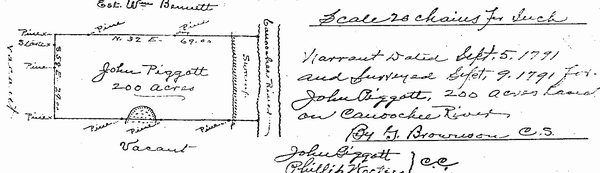 Est. Wm Bennett
Pine Pine
N. 32 E. 69.00
Pine x
Stake x
Pine x
Pine x
S 58 E. 29.00
vacant
John Piggott
200 acres
Swamp
Canoochee River
Pine Pine Pine
Vacant
Scale 20 chains Pr Inch
Warrant Dated Sept. 5. 1791
and Surveyed Sept. 9. 1791 for
John Piggott, 200 Acres Land
on Canoochee River
By J Brownson C.S.
John Piggott
Phillip
} C.C.